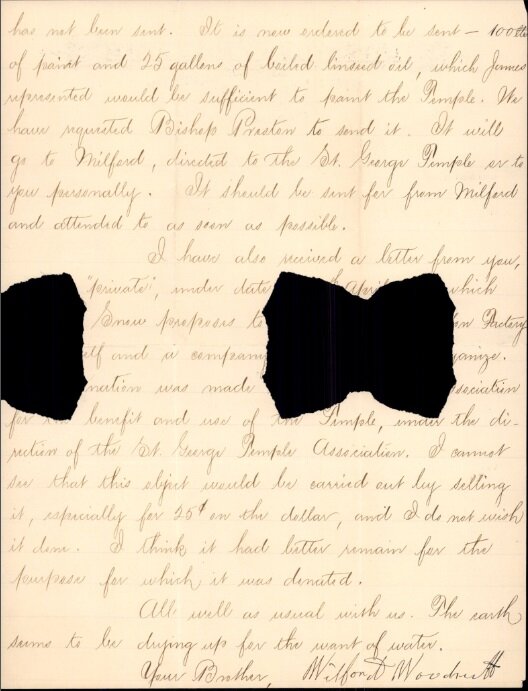 has not been sent. It is now ordered to be sent — 100 lbs
of paint and 25 gallons of boiled linseed oil, which James
represented would be sufficient to paint the Temple. We
have requested Bishop Preston to send it. It will
go to Milford, directed to the St. George Temple or to
you personally. It should be sent for from Milford
and attended to as soon as possible.
I have also received a letter from you,
"private", under date April which
Snow proposes to Factory
self and a company organize.
nation was made Association
for the benefit and use of the Temple, under the di-
rection of the St. George Temple Association. I cannot
see that this object would be carried out by selling
it, especially for 25¢ on the dollar, and I do not wish
it done. I think it had better remain for the
purpose for which it was donated.
All well as usual with us. The earth
seems to be drying up for the want of water.
Your Brother, Wilford Woodruff